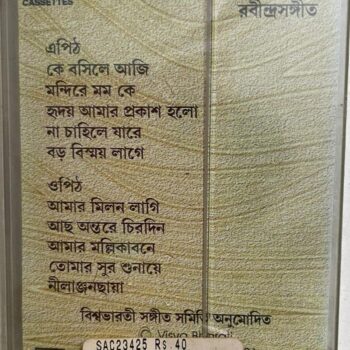 CASSETTES
রবীন্দ্রসঙ্গীত
এপিঠ
কে বসিলে আজি
মন্দিরে মম কে
হৃদয় আমার প্রকাশ হলো
না চাহিলে যারে
বড় বিস্ময় লাগে
ওপিঠ
আমার মিলন লাগি
আছ অন্তরে চিরদিন
আমার মল্লিকাবনে
তোমার সুর শুনায়ে
নীলাঞ্জনছায়া
বিশ্বভারতী সঙ্গীত সমিতি অনুমোদিত
© Visva Bharati
SAC23425 Rs.40